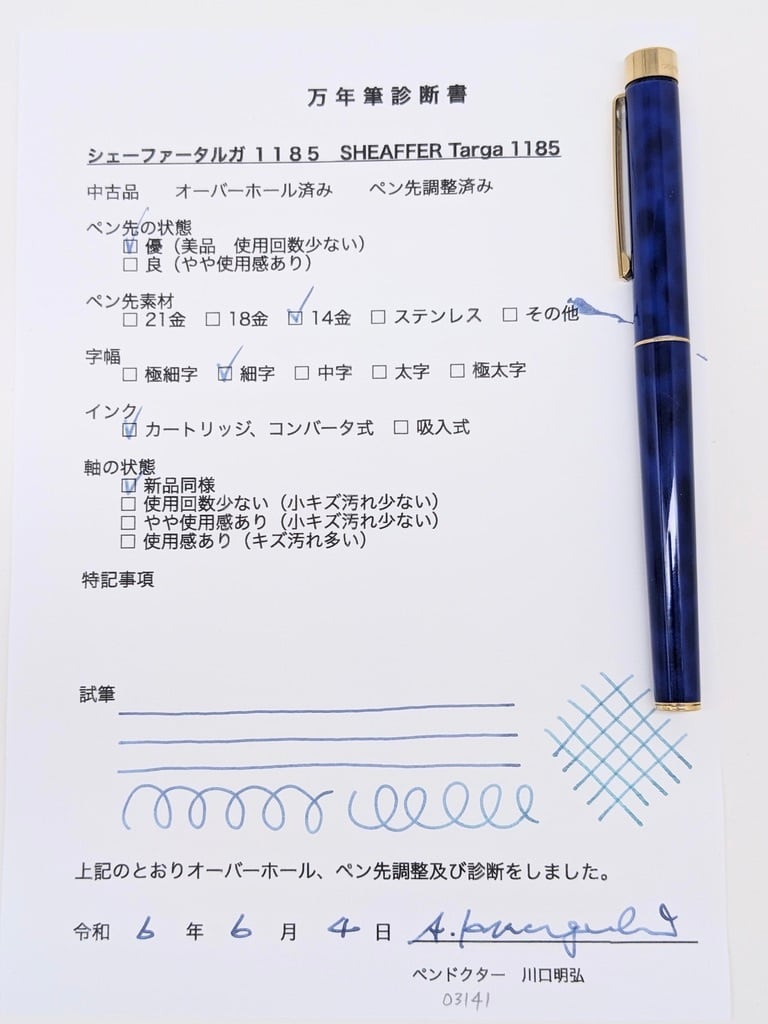 万年筆診断書
シェーファータルガ 1185 SHEAFFER Targa 1185
中古品 オーバーホール済み ペン先調整済み
ペン先の状態
☑ 優（美品 使用回数少ない）
□ 良（やや使用感あり）
ペン先素材
□ 21金 □ 18金 ☑ 14金 □ ステンレス □ その他
字幅
□ 極細字 ☑ 細字 □ 中字 □ 太字 □ 極太字
インク
☑ カートリッジ、コンバータ式 □ 吸入式
軸の状態
☑ 新品同様
□ 使用回数少ない（小キズ汚れ少ない）
□ やや使用感あり（小キズ汚れ少ない）
□ 使用感あり（キズ汚れ多い）
特記事項
試筆
上記のとおりオーバーホール、ペン先調整及び診断をしました。
令和 6 年 6 月 4 日
ペンドクター 川口明弘
03141